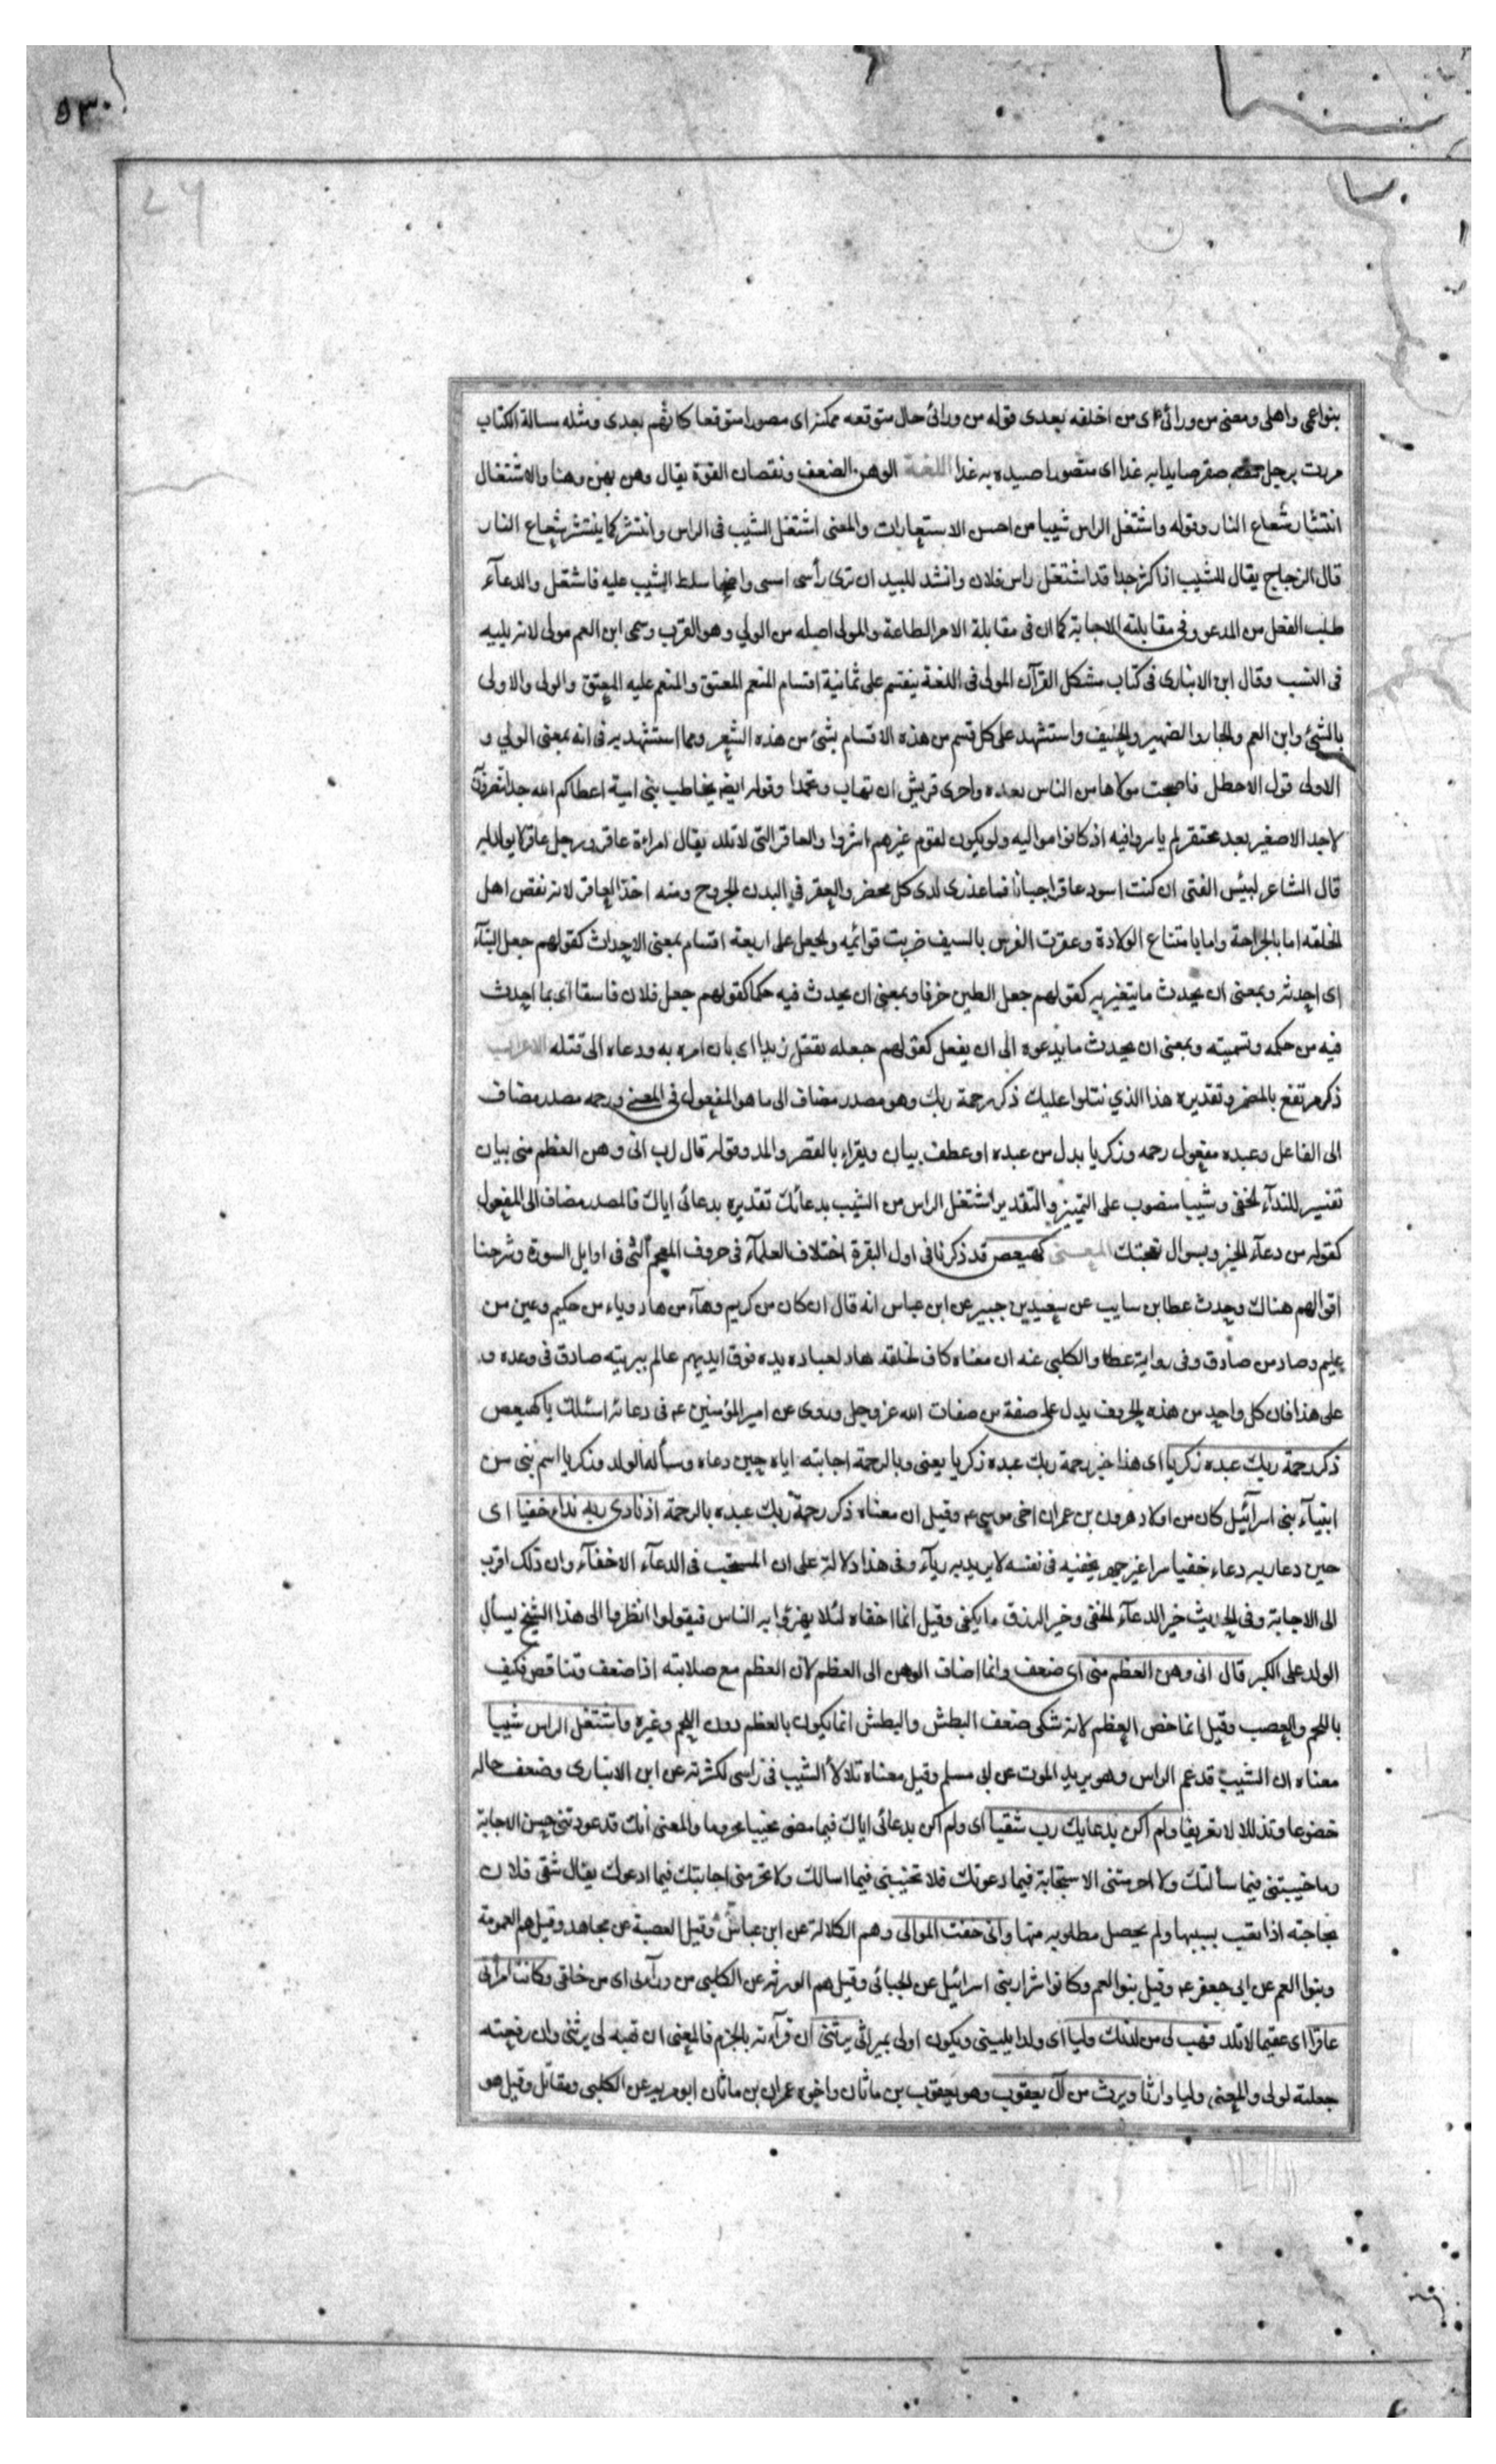 ٥٣٠
بنواعمى واهلى ومعنى من ورائى اى من اخلفه بعدى قوله من ورائى حال متوقعه محكية اى مصورا متوقعا كانهم بعدى ومثله مسالة الكتاب
مررت برجل معه صقر صايدا به غدا اى متصورا صيده به غدا اللغة الوهن الضعف ونقصان القوة يقال وهن يهن وهنا والاشتعال
انتشار شعاع النار وقوله واشتعل الراس شيبا من احسن الاستعارات والمعنى اشتعل الشيب فى الراس وانتشر كما ينتشر شعاع النار
قال الزجاج يقال للشيب اذا كثر جدا قد اشتعل راس فلان وانشد للبيد ان ترى رأسى امسى واضحا سلط الشيب عليه فاشتعل والدعآء
طلب الفعل من المدعو وفى مقابلته الاجابة كما ان فى مقابلة الامر الطاعة والمولى اصله من الولي وهو القرب وسمى ابن العم مولى لانه يليه
فى النسب وقال ابن الانبارى فى كتاب مشكل القرآن المولى فى اللغة ينقسم على ثمانية اقسام المنعم المعتق والمنعم عليه المعتق والولى والاولى
بالشئ وابن العم والجار والصهير والحنيف واستشهد على كل قسم من هذه الاقسام بشئ من هذه الشعر ومما استشهد به فى انه بمعنى الولي و
الاولى قول الاخطل فاصبحت مولاها من الناس بعده واحرى قريش ان تهاب وتحمدا وقوله ايضا يخاطب بنى امية اعطاكم الله جدا تنصرون به
لاجد الا صغير بعد محتقر لم ياسروا فيه اذ كانوا مواليه ولو يكون لقوم غيرهم اشروا والعاقر التى لاتلد يقال امراءة عاقر ورجل عاقر لا يولد له
قال الشاعر لبئس الفتى ان كنت اسود عاقرا جبانا فما عذرى لدى كل محضر والعقر في البدن الجروح ومنه اخذ العاقر لانه نقص اهل
الخلقه اما بالجراحة واما بامتناع الولادة وعقرت الفرس بالسيف ضربت قوائمه والجعل على اربعة اقسام بمعنى الاحداث كقولهم جعل البنآء
اى احدثه وبمعنى ان يحدث ما يتغير به كقولهم جعل الطين خزفا وبمعنى ان يحدث فيه حكما كقولهم جعل فلان فاسقا اى بما احدث
فيه من حكمه وتسميته وبمعنى ان يحدث ما يدعوه الى ان يفعل كقولهم جعله يقتل زيدا اى بان امره به ودعاه الى قتله الاعراب
ذكر مرتفع بالمضمر وتقديره هذا الذي نتلوا عليك ذكر رحمة ربك وهو مصدر مضاف الى ما هو المفعول فى المعنى ورحمه مصدر مضاف
الى الفاعل وعبده مفعول رحمه وزكريا بدل من عبده او عطف بيان ويقراء بالقصر والمد وقوله قال رب انى وهن العظم منى بيان
تفسير للندآء الخفى وشيبا منصوب على التميز والتقدير اشتعل الراس من الشيب بدعائك تقديره بدعائى اياك فالمصدر مضاف الى المفعول
كقوله من دعآء الخير وبسوال نعجتك المعنى كهيعص قد ذكرنا فى اول البقرة اختلاف العلمآء فى حروف المعجم التى فى اوايل السورة وشرحنا
اقوالهم هناك وحدث عطا بن سايب عن سعيد بن جبير عن ابن عباس انه قال ان كان من كريم وهآء من هاد وياء من حكيم وعين من
عليم وصاد من صادق وفى رواية عطا والكلبى عنه ان معناه كاف لخلقه هاد لعباده يده فوق ايديهم عالم ببريته صادق فى وعده و
على هذا فان كل واحد من هذه الحروف يدل على صفة من صفات الله عز وجل وروى عن امير المؤمنين ع فى دعائه اسئلك يا كهيعص
ذكر رحمة ربك عبده زكريا اى هذا خبر رحمة ربك عبده زكريا يعنى وبالرحمة اجابته اياه حين دعاه وسأله الولد وزكريا اسم نبى من
انبيآء بنى اسرآئيل كان من اولاد هرون بن عمران اخى موسى ع وقيل ان معناه ذكر رحمة ربك عبده بالرحمة اذ نادى ربه نداء خفيا اى
حين دعا ربه دعاء خفيا سرا غير جهر يخفيه فى نفسه لا يريد به ريآء وفى هذا دلالة على ان المستحب فى الدعآء الاخفآء وان ذلك اقرب
الى الاجابة وفى الحديث خير الدعآء الخفى وخير الرزق ما يكفى وقيل انما اخفاه لئلا يهزؤا به الناس فيقولوا انظروا الى هذا الشيخ يسأل
الولد على الكبر قال انى وهن العظم منى اى ضعف وانما اضاف الوهن الى العظم لان العظم مع صلابته اذا ضعف وتناقص فكيف
باللحم والعصب وقيل انما خص العظم لانه شكى ضعف البطش والبطش انما يكون بالعظم دون اللحم وغيره واشتعل الراس شيبا
معناه ان الشيب قد عم الراس وهو يريد الموت عن ابى مسلم وقيل معناه تلالأ الشيب فى راسى لكثرته عن ابن الانبارى وضعف حاله
خضوعا وتذللا لا تعريفا ولم اكن بدعايك رب شقيا اى ولم اكن بدعائى اياك فيما مضى مخيبا محروما والمعنى انك قد عودتنى حسن الاجابة
وما خيبتنى فيما سألتك ولا احرمتنى الاستجابة فيما دعوتك فلا تخيبنى فيما اسالك ولا تحرمنى اجابتك فيما ادعوك يقال شقى فلان
بحاجته اذا تعب بسببها ولم يحصل مطلوبه منها وانى خفت الموالى وهم الكلالة عن ابن عباس وقيل العصبة عن مجاهد وقيل هم العمومة
وبنوا العم عن ابى جعفر ع وقيل بنوا العم وكانوا شرار بنى اسرائيل عن الجبائى وقيل هم الورثه عن الكلبى من ورآءى اى من خلفى وكانت امرأتى
عاقرا اى عقيما لاتلد فهب لى من لدنك وليا اى ولدا يلينى ويكون اولى بميراثى يرثنى ان قرآءته بالجزم فالمعنى ان تهبه لى يرثنى وان رفعته
جعلته لولى والمعنى وليا وارثا ويرث من آل يعقوب وهو يعقوب بن ماثان واخوه عمران بن ماثان ابو مريم عن الكلبى ومقاتل وقيل هو